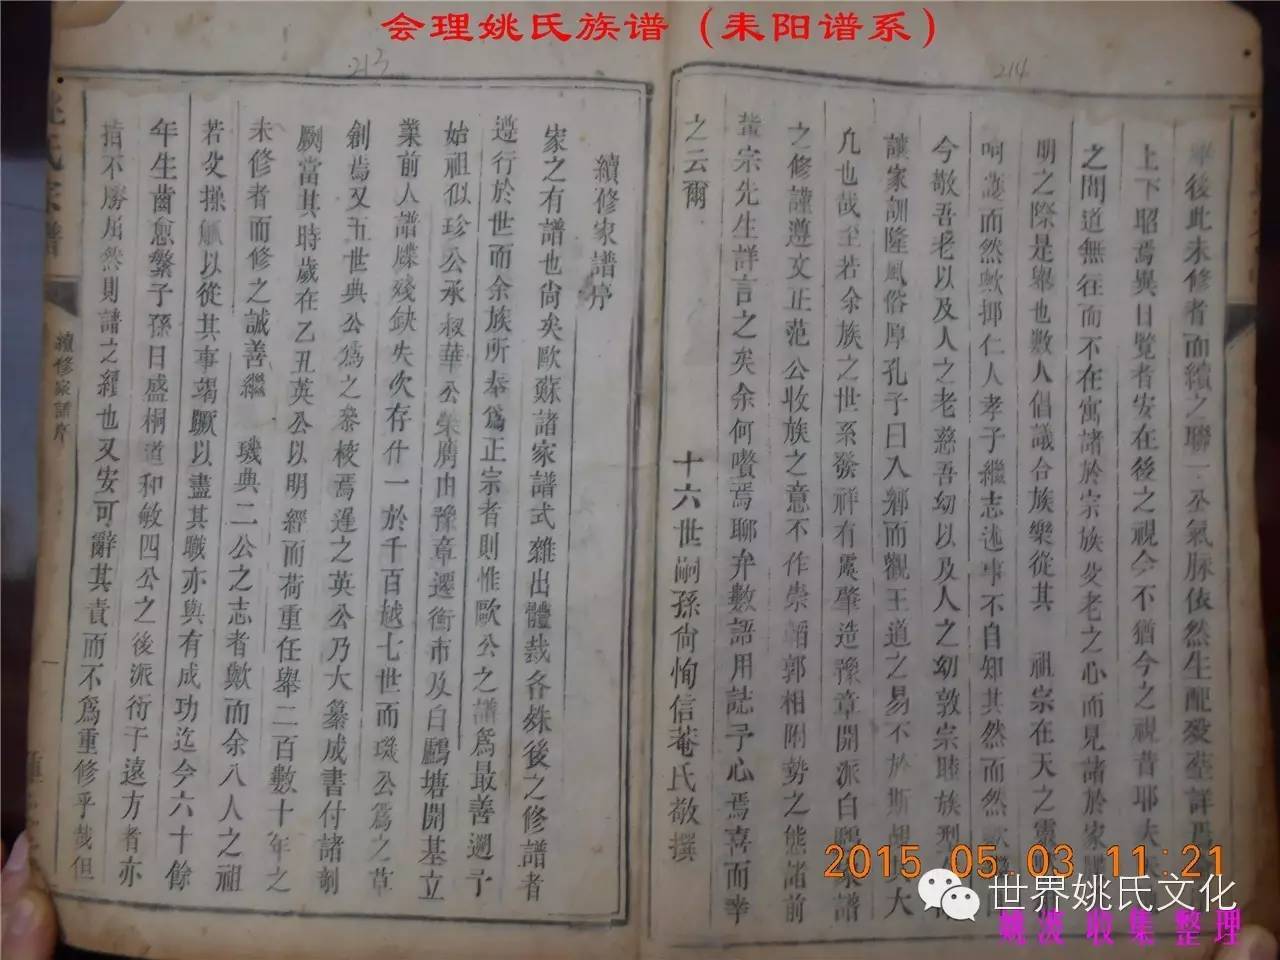 会理姚氏族谱（耒阳谱系）
214
舉後此未修者而續之聯一
氣脉依然生配殁塟詳
上下昭焉異日覧者安在後之視今不猶今之視昔耶夫
之間道無往而不在寓諸於宗族父老之心而見諸於家
明之際是舉也數人倡議合族樂從其 祖宗在天之靈
呵護而然歟抑仁人孝子繼志述事不自知其然而然歟
今敬吾老以及人之老慈吾幼以及人之幼敦宗睦族型
讓家訓隆風俗厚孔子曰入鄉而觀王道之易不於斯
大
凡也哉至若余族之世系發祥有處肇造豫章開派白鷴
家譜
之修謹遵文正范公收族之意不作崇韜郭相附勢之態諸前
輩宗先生詳言之矣余何贅焉聊弁數語用誌予心焉喜而幸
之云爾
十六世嗣孫尙恂信菴氏敬撰
213
續修家譜序
家之有譜也尙矣歐蘇諸家譜式雜出體裁各殊後之修譜者
遵行於世而余族所奉爲正宗者則惟歐公之譜爲最善遡予
始祖似珍公承叔華公榮膺由豫章遷衡市及白鷴塘開基立
業前人譜牒殘缺失次存什一於千百越七世而璣公爲之草
創焉又五世典公爲之叅校焉遅之英公乃大纂成書付諸剞
劂當其時歲在乙丑英公以明經而荷重任舉二百數十年之
未修者而修之誠善繼 璣典二公之志者歟而余八人之祖
若父操觚以從其事竭蹶以盡其職亦與有成功迄今六十餘
年生齒愈繁子孫日盛桐道和敏四公之後派衍于遠方者亦
指不勝屈然則譜之經也又安可辭其責而不爲重修乎哉但
姚氏宗譜
續修家譜序
一
2015.05.03 11:21
世界姚氏文化
姚波 收集整理